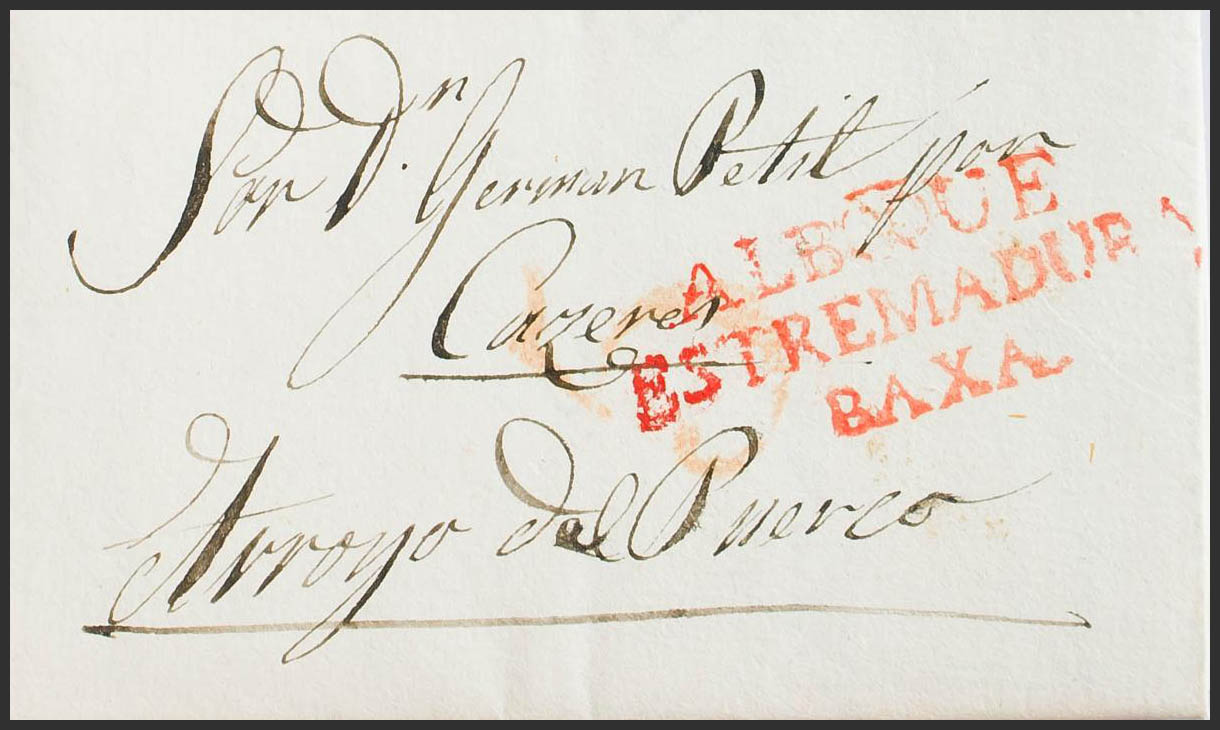 Sor Dn. German Petit por
Cazeres
Arroyo del Puerco
ALBQUE
ESTREMADURA
BAXA